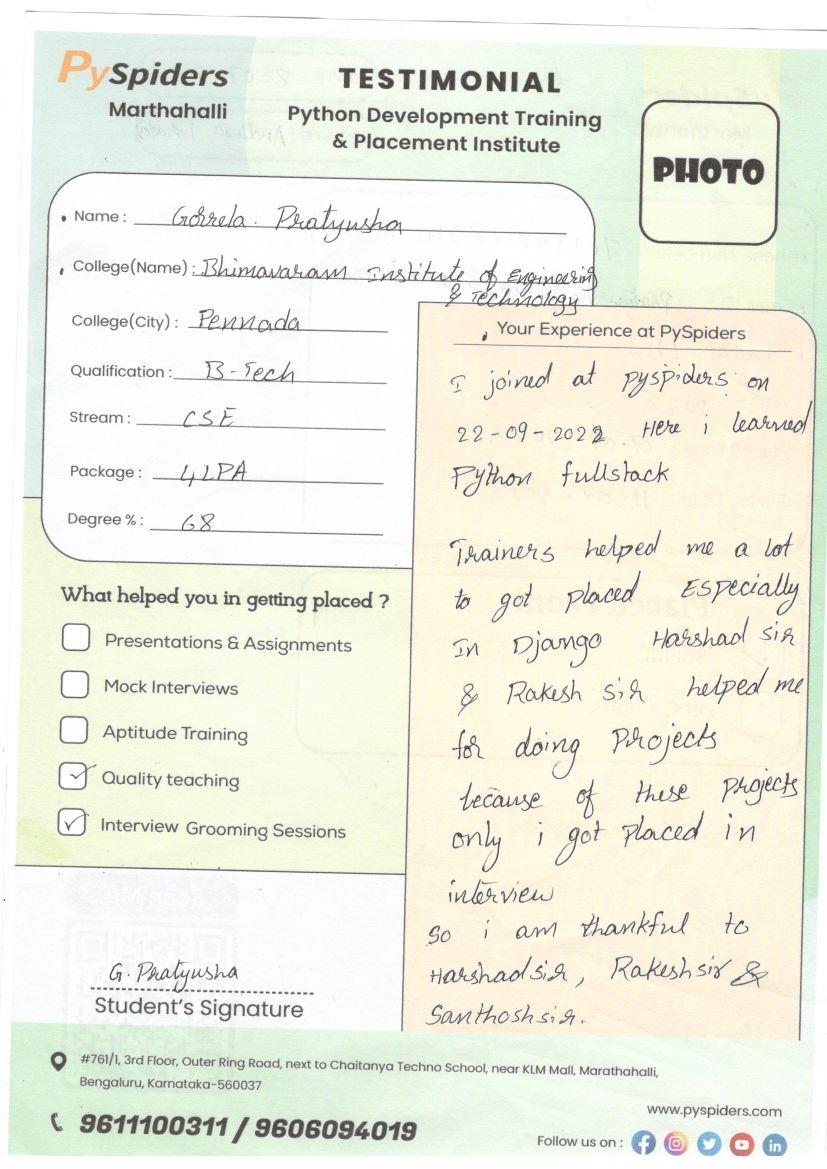 PySpiders
Marthahalli
TESTIMONIAL
Python Development Training
& Placement Institute
PHOTO
Name : Gorrela. Pratyusha
College(Name) : Bhimavaram Institute of Engineering
& Technology
College(City) : Pennada
Qualification : B-Tech
Stream : CSE
Package : 4LPA
Degree % : 68
What helped you in getting placed ?
Presentations & Assignments
Mock Interviews
Aptitude Training
Quality teaching
Interview Grooming Sessions
G. Pratyusha
Student's Signature
Your Experience at PySpiders
I joined at pyspiders on
22-09-2022 Here i learned
Python fullstack
Trainers helped me a lot
to got placed Especially
In Django Harshad sir
& Rakesh sir helped me
for doing Projects
because of these projects
only i got placed in
interview
So i am thankful to
Harshadsir, Rakeshsir &
Santhoshsir.
#761/1, 3rd Floor, Outer Ring Road, next to Chaitanya Techno School, near KLM Mall, Marathahalli,
Bengaluru, Karnataka-560037
9611100311 / 9606094019
www.pyspiders.com
Follow us on :